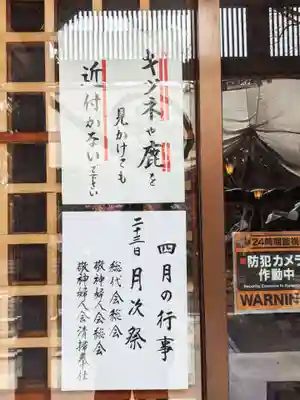 キツネや鹿を
見かけても
近付かないで下さい
四月の行事
二十三日 月次祭
総代会総会
敬神婦人会総会
敬神婦人会清掃奉仕
24時間監視
防犯カメラ
作動中
WARNIN